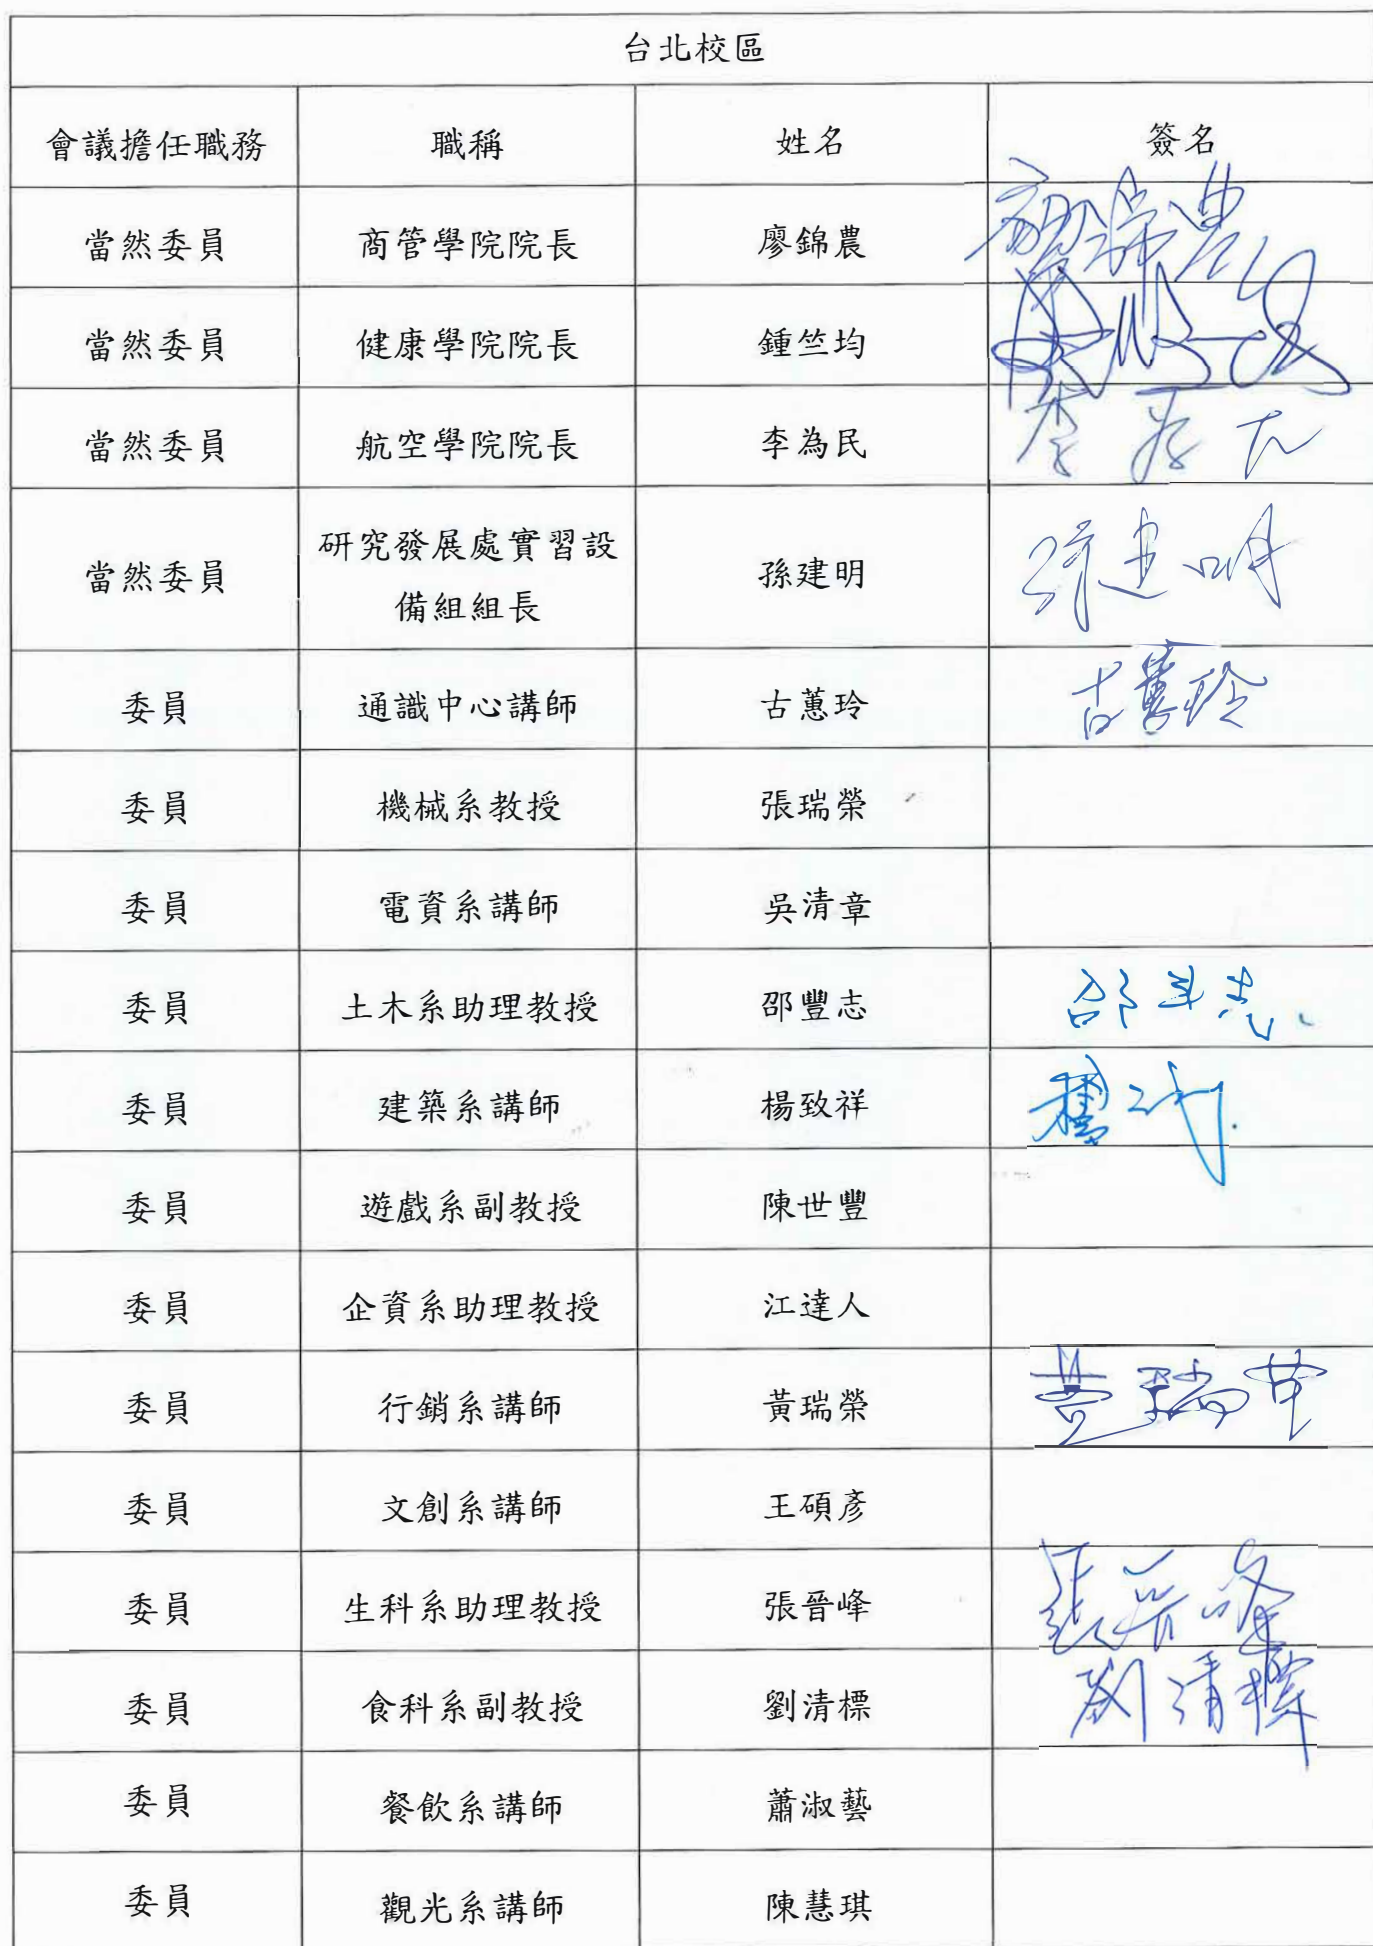 台北校區
會議擔任職務 職稱 姓名 簽名
當然委員 商管學院院長 廖錦農 廖錦農
當然委員 健康學院院長 鍾竺均
當然委員 航空學院院長 李為民 李為民
當然委員 研究發展處實習設
備組組長 孫建明 孫建明
委員 通識中心講師 古蕙玲 古蕙玲
委員 機械系教授 張瑞榮
委員 電資系講師 吳清章
委員 土木系助理教授 邵豐志 邵豐志
委員 建築系講師 楊致祥
委員 遊戲系副教授 陳世豐
委員 企資系助理教授 江達人
委員 行銷系講師 黃瑞榮 黃瑞榮
委員 文創系講師 王碩彥
委員 生科系助理教授 張晉峰 張晉峰
委員 食科系副教授 劉清標 劉清標
委員 餐飲系講師 蕭淑藝
委員 觀光系講師 陳慧琪